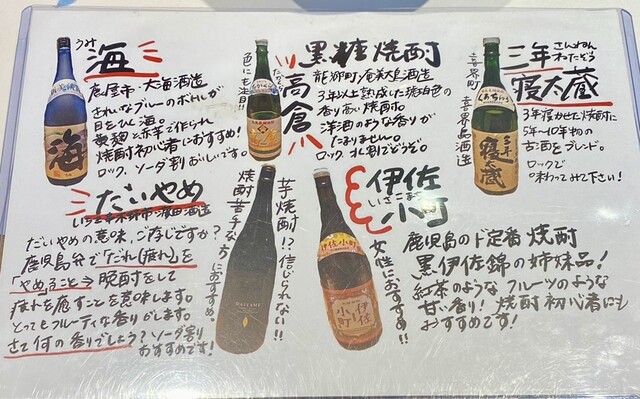 うみ
海
鹿屋市・大海酒造
きれいなブルーのボトルが
目をひく海。
黄麹と赤芋で作られ
焼酎初心者におすすめ!
ロック、ソーダ割おいしいです。
海
黒糖焼酎
たかくら
高倉
色にも注目!!
龍郷町・奄美大島酒造
3年以上熟成した琥珀色の
香り高い焼酎。
洋酒のような香りが
たまりません。
ロック、水割でどうぞ。
さんねん
ねたぞう
三年
寝太蔵
喜界町
喜界島酒造
3年寝かせた焼酎に
5年〜10年物の
古酒をブレンド。
ロックで
味わってみて下さい!
三年
寝太蔵
だいやめ
いちき串木野市・濵田酒造
だいやめの意味、ご存じですか?
鹿児島弁で「だれ(疲れ)」を
「やめる」こと→晩酌をして
疲れを癒すことを意味します。
とってもフルーティな香りがします。
さて何の香りでしょう?ソーダ割
おすすめです!
芋焼酎!?信じられない!!
焼酎苦手な方におすすめ。
DAIYAME
伊佐
いさこまち
小町
女性におすすめです。
鹿児島のド定番焼酎
黒伊佐錦の姉妹品!
紅茶のような フルーツのような
甘い香り! 焼酎初心者にも
おすすめです!
伊佐小町
伊佐
小町